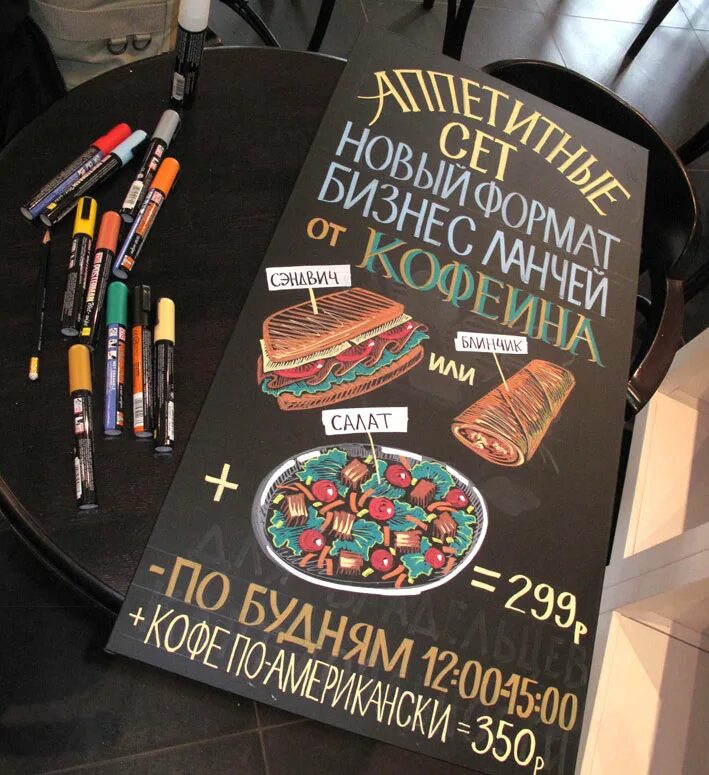 АППЕТИТНЫЕ
СЕТ
НОВЫЙ ФОРМАТ
БИЗНЕС ЛАНЧЕЙ
ОТ КОФЕИНА
СЭНДВИЧ
ИЛИ
БЛИНЧИК
САЛАТ
+
= 299р
-ПО БУДНЯМ 12:00-15:00
+ КОФЕ ПО-АМЕРИКАНСКИ = 350р